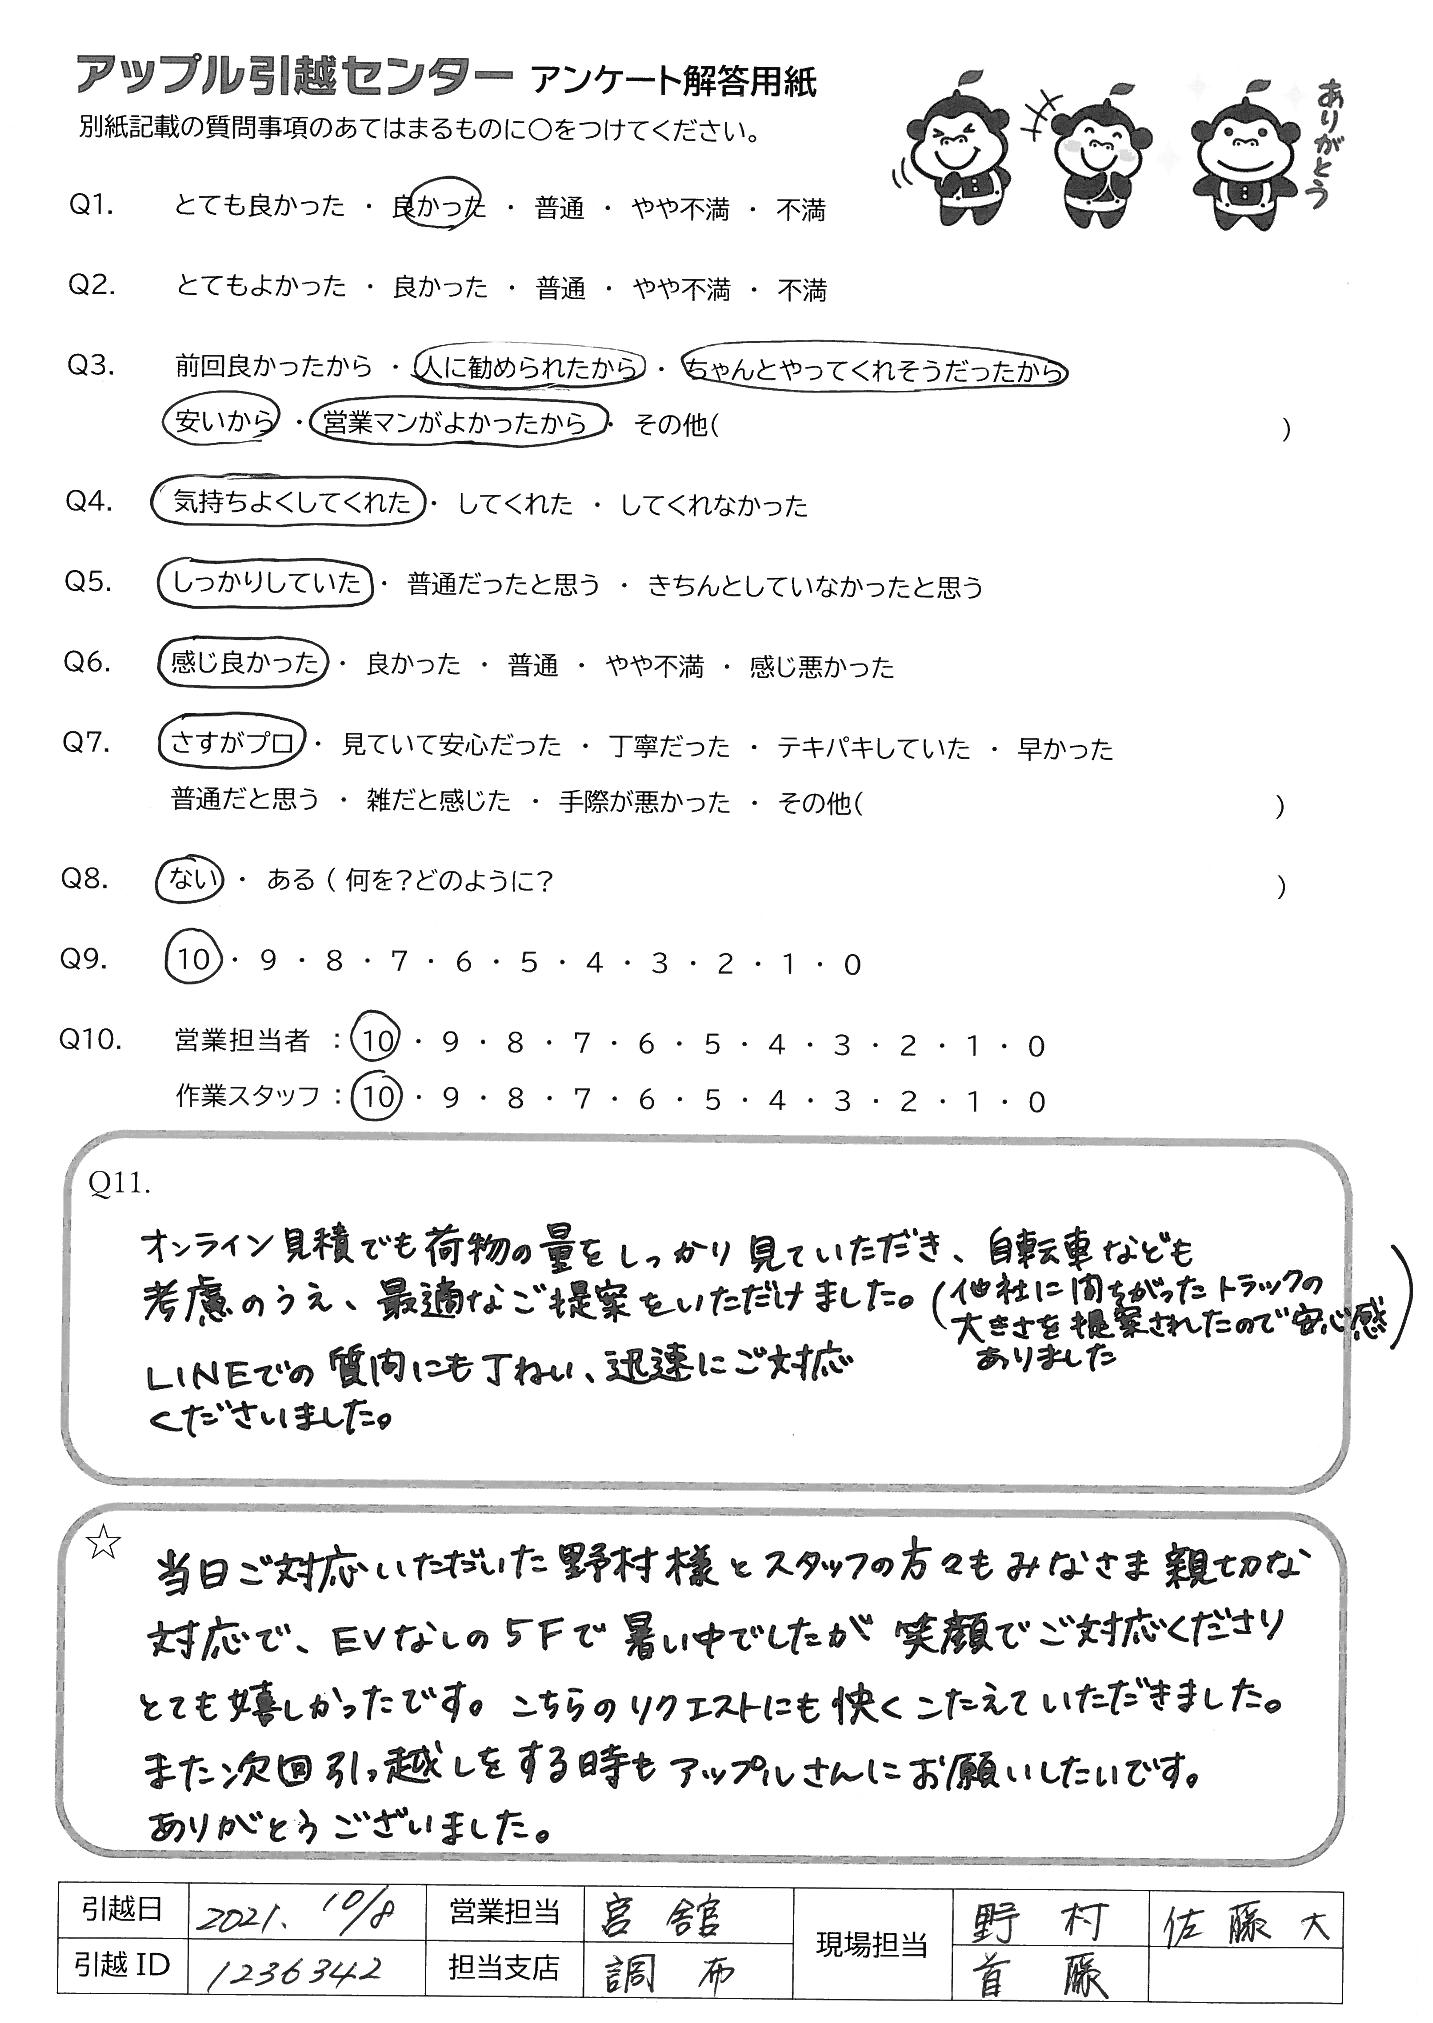 アップル引越センター アンケート解答用紙
別紙記載の質問事項のあてはまるものに〇をつけてください。
ありがとう
Q1. とても良かった ・ 良かった ・ 普通 ・ やや不満 ・ 不満
Q2. とてもよかった ・ 良かった ・ 普通 ・ やや不満 ・ 不満
Q3. 前回良かったから ・ 人に勧められたから ・ ちゃんとやってくれそうだったから
安いから ・ 営業マンがよかったから ・ その他( )
Q4. 気持ちよくしてくれた ・ してくれた ・ してくれなかった
Q5. しっかりしていた ・ 普通だったと思う ・ きちんとしていなかったと思う
Q6. 感じ良かった ・ 良かった ・ 普通 ・ やや不満 ・ 感じ悪かった
Q7. さすがプロ ・ 見ていて安心だった ・ 丁寧だった ・ テキパキしていた ・ 早かった
普通だと思う ・ 雑だと感じた ・ 手際が悪かった ・ その他( )
Q8. ない ・ ある ( 何を?どのように? )
Q9. 10 ・ 9 ・ 8 ・ 7 ・ 6 ・ 5 ・ 4 ・ 3 ・ 2 ・ 1 ・ 0
Q10. 営業担当者 : 10 ・ 9 ・ 8 ・ 7 ・ 6 ・ 5 ・ 4 ・ 3 ・ 2 ・ 1 ・ 0
作業スタッフ : 10 ・ 9 ・ 8 ・ 7 ・ 6 ・ 5 ・ 4 ・ 3 ・ 2 ・ 1 ・ 0
Q11.
オンライン見積でも荷物の量をしっかり見ていただき、自転車なども
考慮のうえ、最適なご提案をいただけました。(他社に間ちがったトラックの
大きさを提案されたので安心感
ありました)
LINEでの質問にも丁ねい、迅速にご対応
くださいました。
☆
当日ご対応いただいた野村様とスタッフの方々もみなさま親切な
対応で、EVなしの5Fで暑い中でしたが笑顔でご対応くださり
とても嬉しかったです。こちらのリクエストにも快くこたえていただきました。
また次回引っ越しをする時もアップルさんにお願いしたいです。
ありがとうございました。
引越日 2021. 10/8 営業担当 宮舘 現場担当 野村 佐藤大
引越 ID 1236342 担当支店 調布 首藤